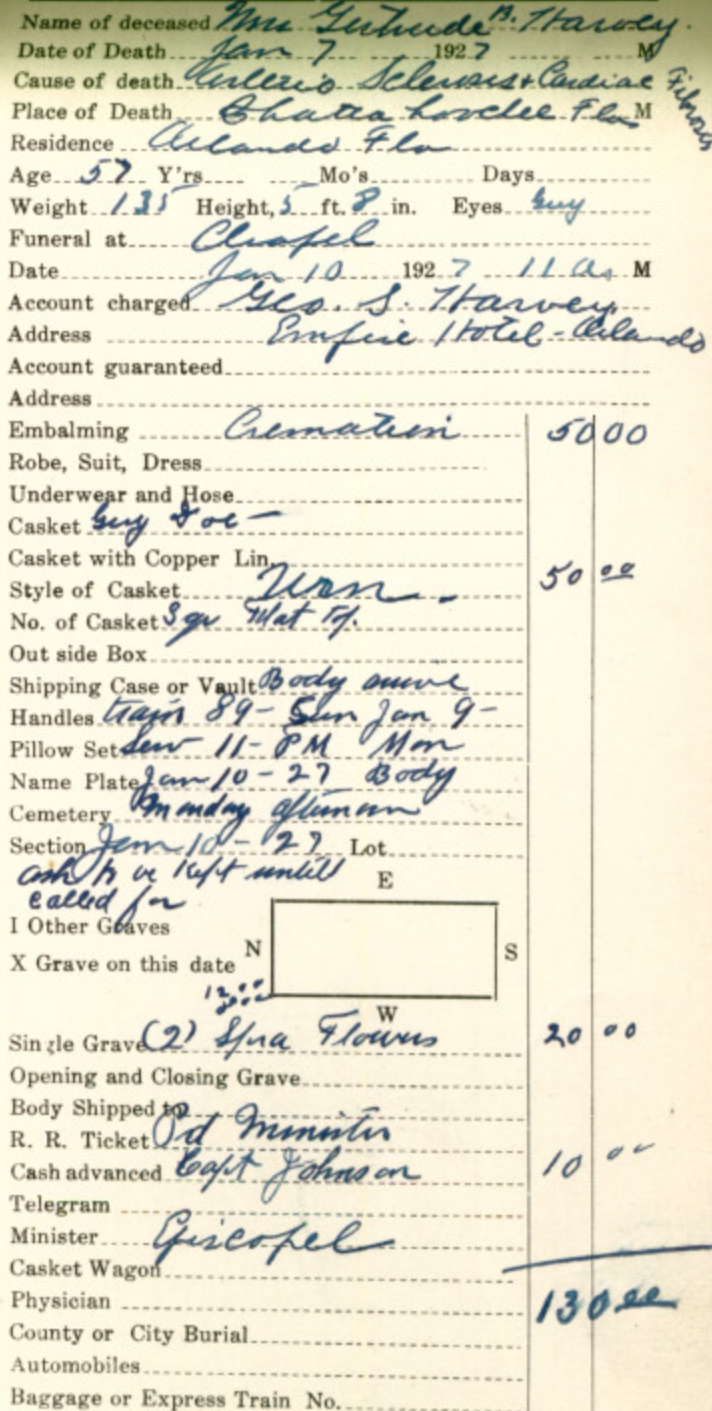 Name of deceased Mrs Gertrude B. Harvey.
Date of Death Jan 7 1927 M
Cause of death Arterio Sclerosis + Cardiac Fibrosis
Place of Death Chattahoochee Fla M
Residence Orlando Fla
Age 57 Y'rs Mo's Days
Weight 135 Height, 5 ft. 8 in. Eyes Grey
Funeral at Chapel
Date Jan 10 1927 11 a. M
Account charged Geo. S. Harvey
Address Empire Hotel - Orlando
Account guaranteed
Address
Embalming Cremation 50 00
Robe, Suit, Dress
Underwear and Hose
Casket Grey
Casket with Copper Lin.
Style of Casket Urn - 50 00
No. of Casket
Out side Box
Shipping Case or Vault Body
Handles train 89 - Sun Jan 9 -
Pillow Set 11 - PM Mon
Name Plate Jan 10 - 27 Body
Cemetery Monday afternoon
Section Jan 10 - 27 Lot
ash to be kept untill
called for
E
I Other Graves
N S
X Grave on this date
12.00
W
Single Grave (2) Spra Flowers 20 00
Opening and Closing Grave
Body Shipped to
R. R. Ticket Pd Minister
Cash advanced Capt Johnson 10 00
Telegram
Minister Episcopel
Casket Wagon
Physician 130 00
County or City Burial
Automobiles
Baggage or Express Train No.